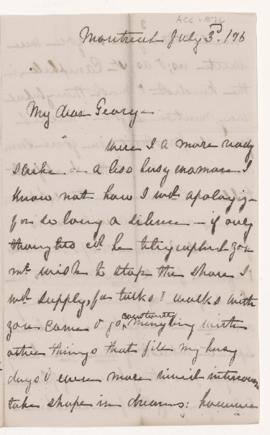 Montreal July 3rd. /76
My dear George.
Were I a more ready
scribe - a less busy mamma I
know not how I wd. apologize
for so long a silence - if only
thoughts cd. be telegraphed you
mt. wish to stop the share I
wd. supply, for talks & walks with
you come & go constantly mingling with
other things that fill my busy
days & even more vivid intercourse
take shape in dreams: however